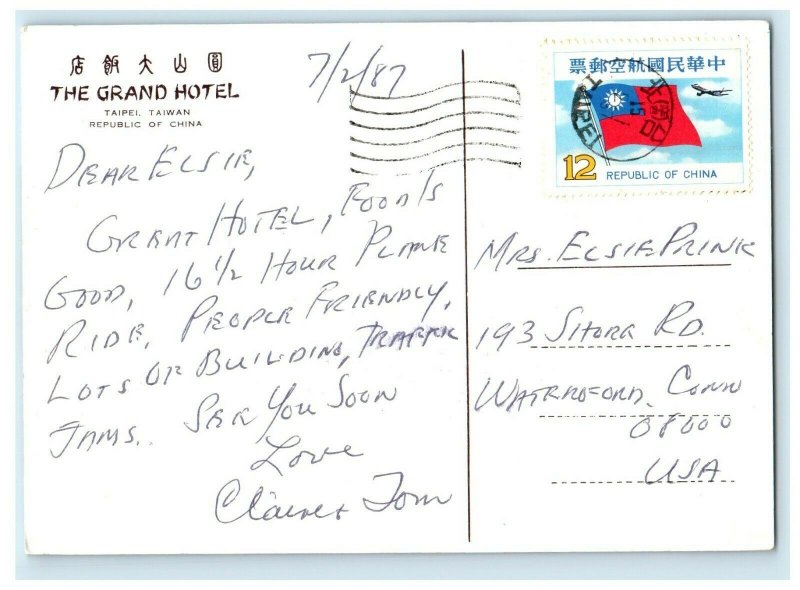 店飯大山圓
THE GRAND HOTEL
TAIPEI, TAIWAN
REPUBLIC OF CHINA
7/2/87
票郵空航國民華中
TAIPEI
12 REPUBLIC OF CHINA
DEAR ELSIE,
GREAT HOTEL, FOOD IS
GOOD, 16 1/2 HOUR PLANE
RIDE, PEOPLE FRIENDLY,
LOTS OF BUILDING, TRAFFIK
JAMS. SEE YOU SOON
Love
Claire + Tom
MRS. ELSIE PRINK
193 SHORE RD.
WATERFORD, CONN
08000
USA